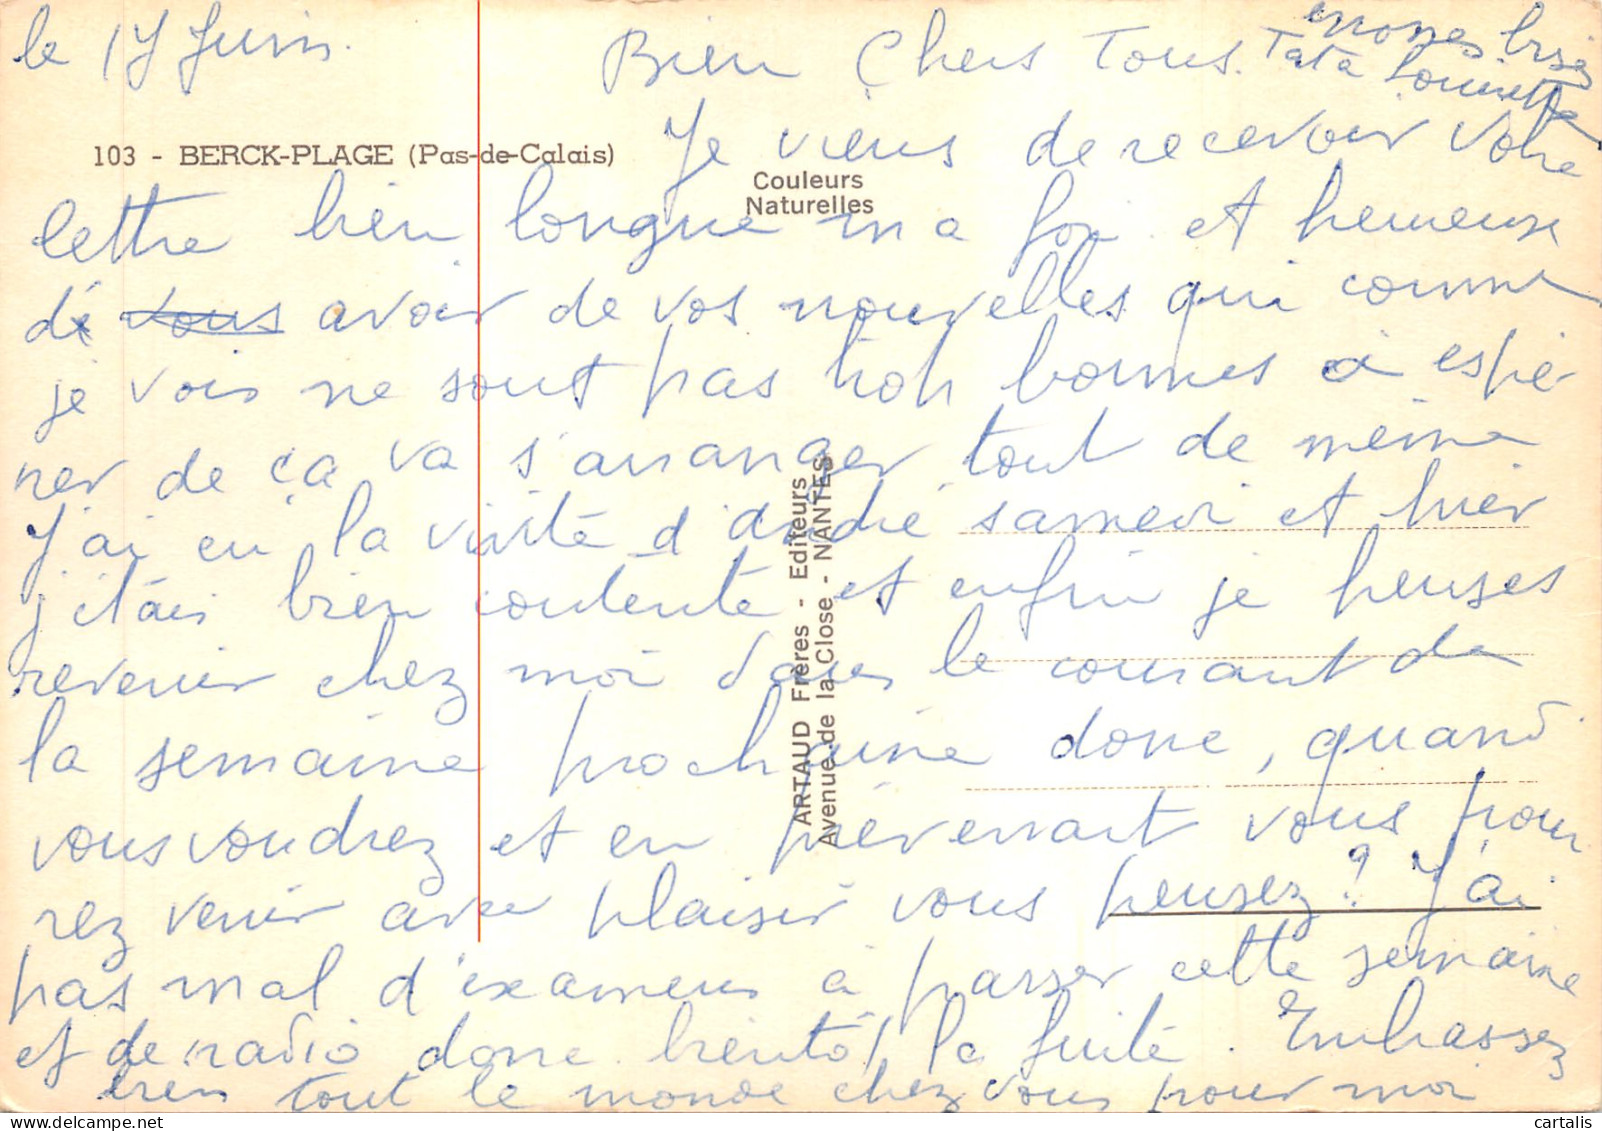 le 17 Juin.
Bien Chers Tous.
énormes bises
Tata Louisette
103 - BERCK-PLAGE (Pas-de-Calais)
Couleurs
Naturelles
Je viens de recevoir votre
lettre bien longue ma foi et heureuse
de vous avoir de vos nouvelles qui comme
je vois ne sont pas trop bonnes à espé-
rer de ça va s'arranger tout de même
J'ai eu la visite d'André samedi et hier
j'étais bien contente et enfin je penses
revenir chez moi dans le courant de
la semaine prochaine donc, quand
vous voudrez et en prévenant vous pour
rez venir avec plaisir vous pensez? J'ai
pas mal d'examens à passer cette semaine
et de radio donc bientôt la fuite. Embrassez
bien tout le monde chez vous pour moi
ARTAUD Frères - Editeurs
Avenue de la Close - NANTES
cartalis